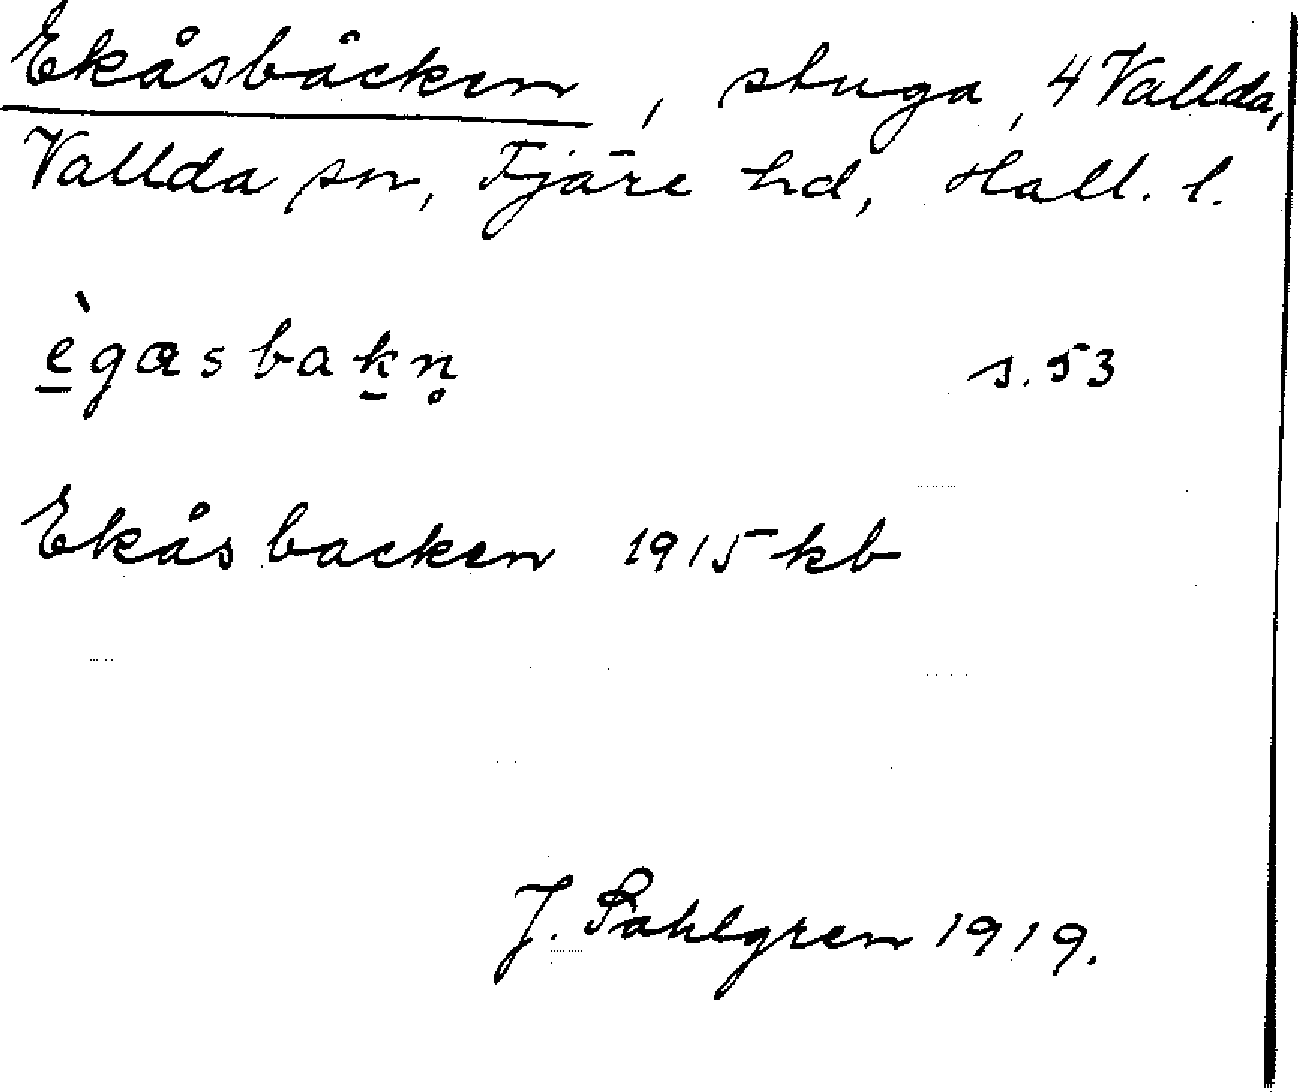 Ekåsbäcken, stuga, 4 Vallda,
Vallda sn, Fjäre hd, Hall. l.
ègasbakn̥ s. 53
Ekåsbacken 1915 kb
J. Sahlgren 1919.